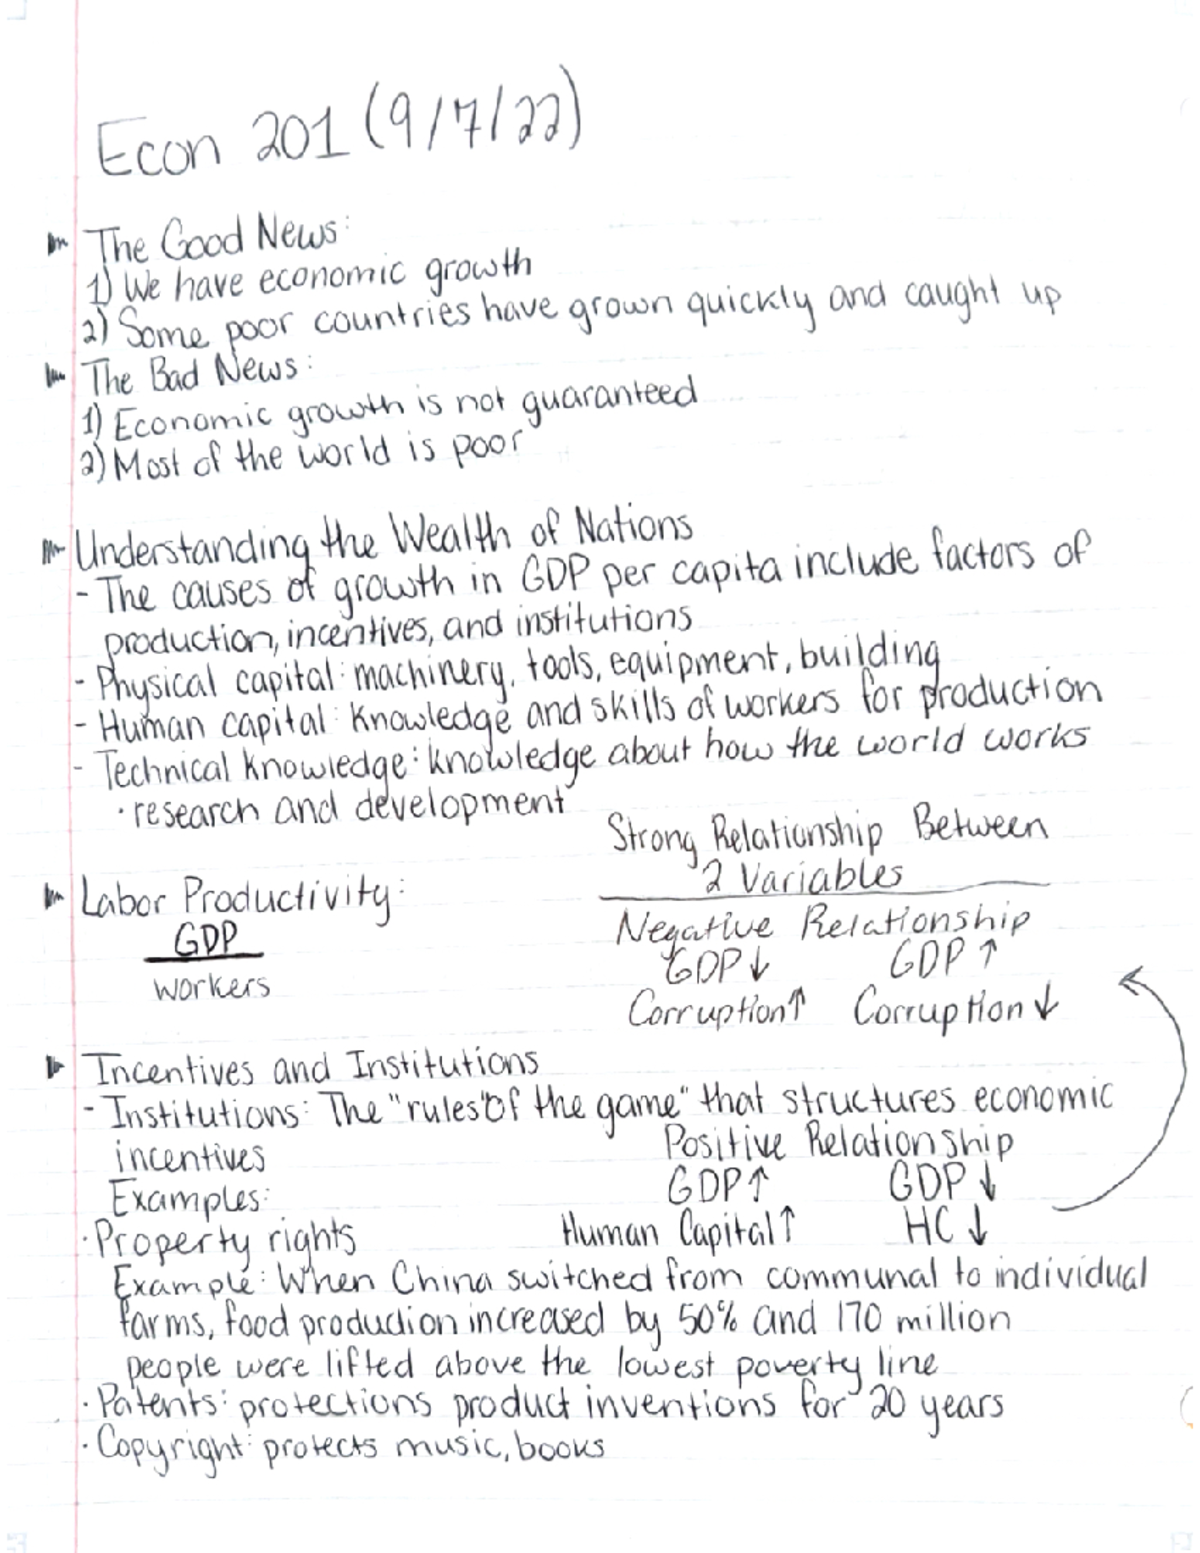 Econ 201 (9/7/22)
The Good News:
1) We have economic growth
2) Some poor countries have grown quickly and caught up
The Bad News:
1) Economic growth is not guaranteed
2) Most of the world is poor
Understanding the Wealth of Nations
- The causes of growth in GDP per capita include factors of
production, incentives, and institutions
- Physical capital: machinery, tools, equipment, building
- Human capital: knowledge and skills of workers for production
- Technical knowledge: knowledge about how the world works
· research and development
Strong Relationship Between
2 Variables
Labor Productivity:
GDP
workers
Negative Relationship
GDP↓ GDP↑
Corruption↑ Corruption↓
Incentives and Institutions
- Institutions: The "rules" of the game" that structures economic
incentives
Positive Relationship
GDP↑ GDP↓
Human Capital↑ HC↓
Examples:
· Property rights
Example: When China switched from communal to individual
farms, food production increased by 50% and 170 million
people were lifted above the lowest poverty line
· Patents: protections product inventions for 20 years
· Copyright: protects music, books